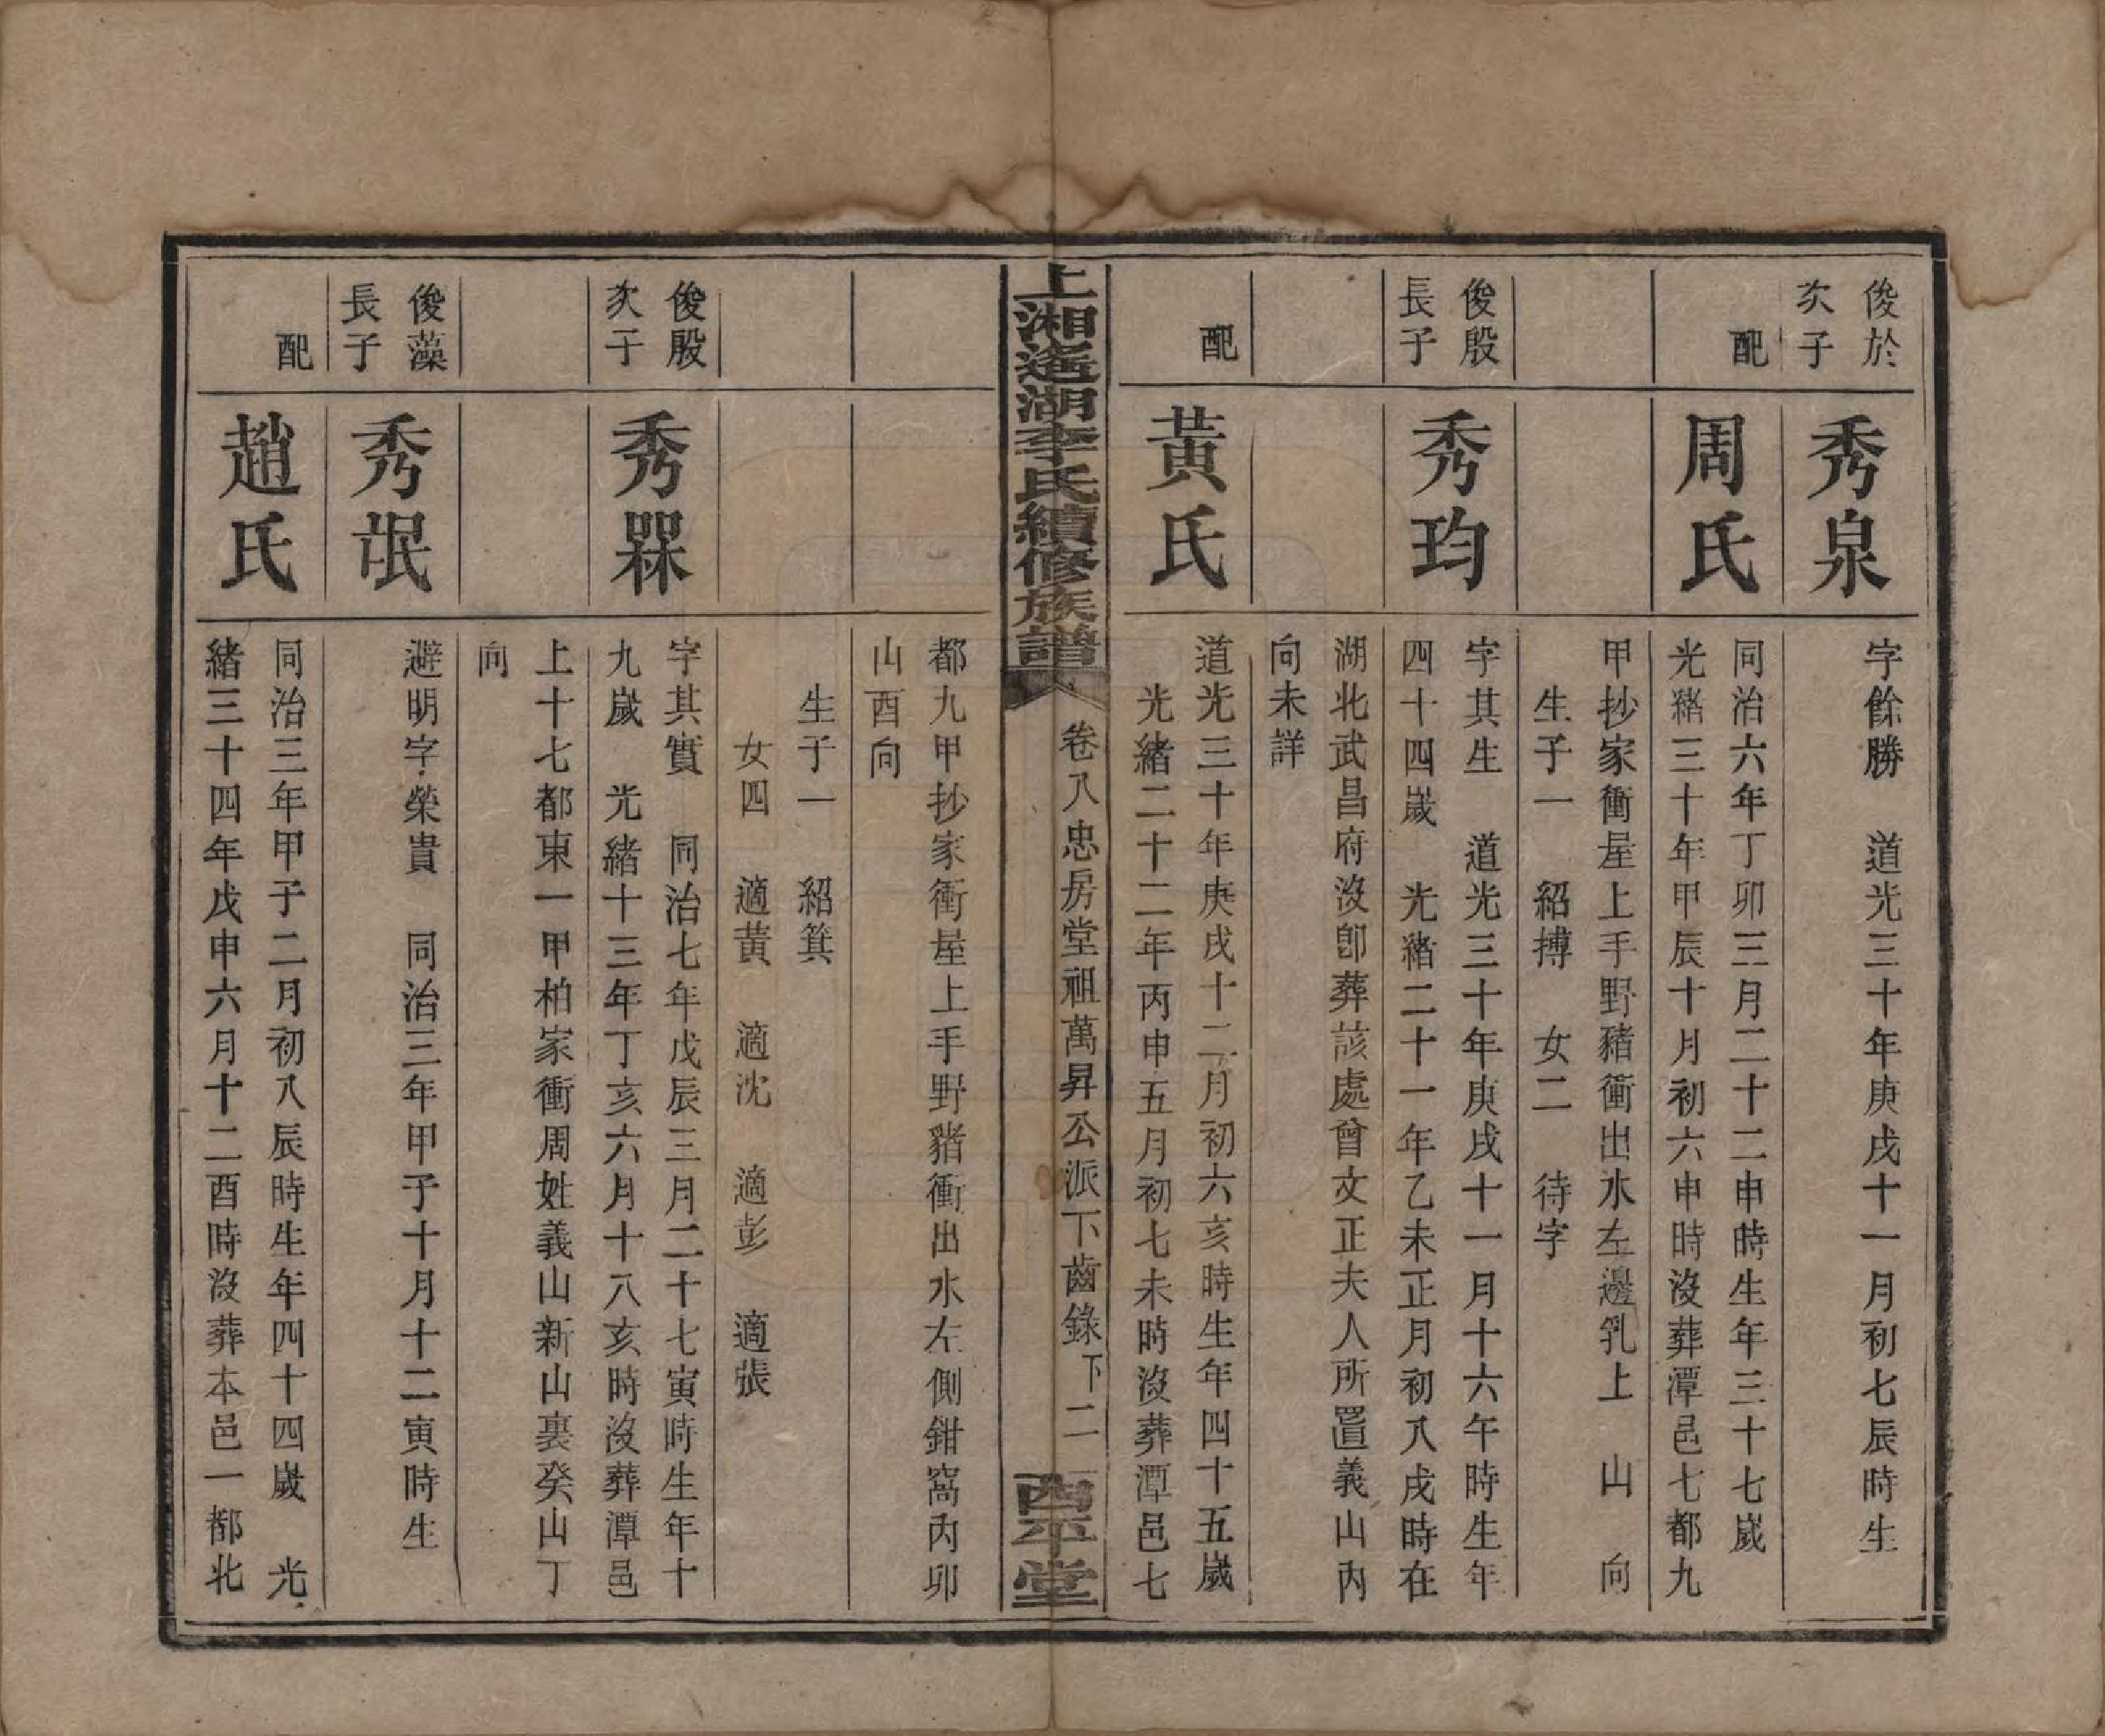 俊於
次子
秀泉
字餘勝　道光三十年庚戌十一月初七辰時生
配
周氏
同治六年丁卯三月二十二申時生年三十七嵗
光緒三十年甲辰十月初六申時沒葬潭邑七都九
甲抄家衝屋上手野豬衝出水左邊乳上　山　向
生子一　紹搏　女二　待字
俊殷
長子
秀均
字其生　道光三十年庚戌十一月十六午時生年
四十四嵗　光緒二十一年乙未正月初八戌時在
湖北武昌府沒卽葬該處曾文正夫人所置義山內
向未詳
配
黃氏
道光三十年庚戌十二月初六亥時生年四十五嵗
光緒二十二年丙申五月初七未時沒葬潭邑七
上湘遙湖李氏續修族譜
卷八忠房堂祖萬昇公派下齒錄下二
西平堂
都九甲抄家衝屋上手野豬衝出水左側鉗窩內卯
山酉向
生子一　紹箕
女四　適黃　適沈　適彭　適張
俊殷
次子
秀槑
字其實　同治七年戊辰三月二十七寅時生年十
九嵗　光緒十三年丁亥六月十八亥時沒葬潭邑
上十七都東一甲柏家衝周姓義山新山裏癸山丁
向
俊藻
長子
秀氓
避明字榮貴　同治三年甲子十月十二寅時生
配
趙氏
同治三年甲子二月初八辰時生年四十四嵗　光
緒三十四年戊申六月十二酉時沒葬本邑一都北